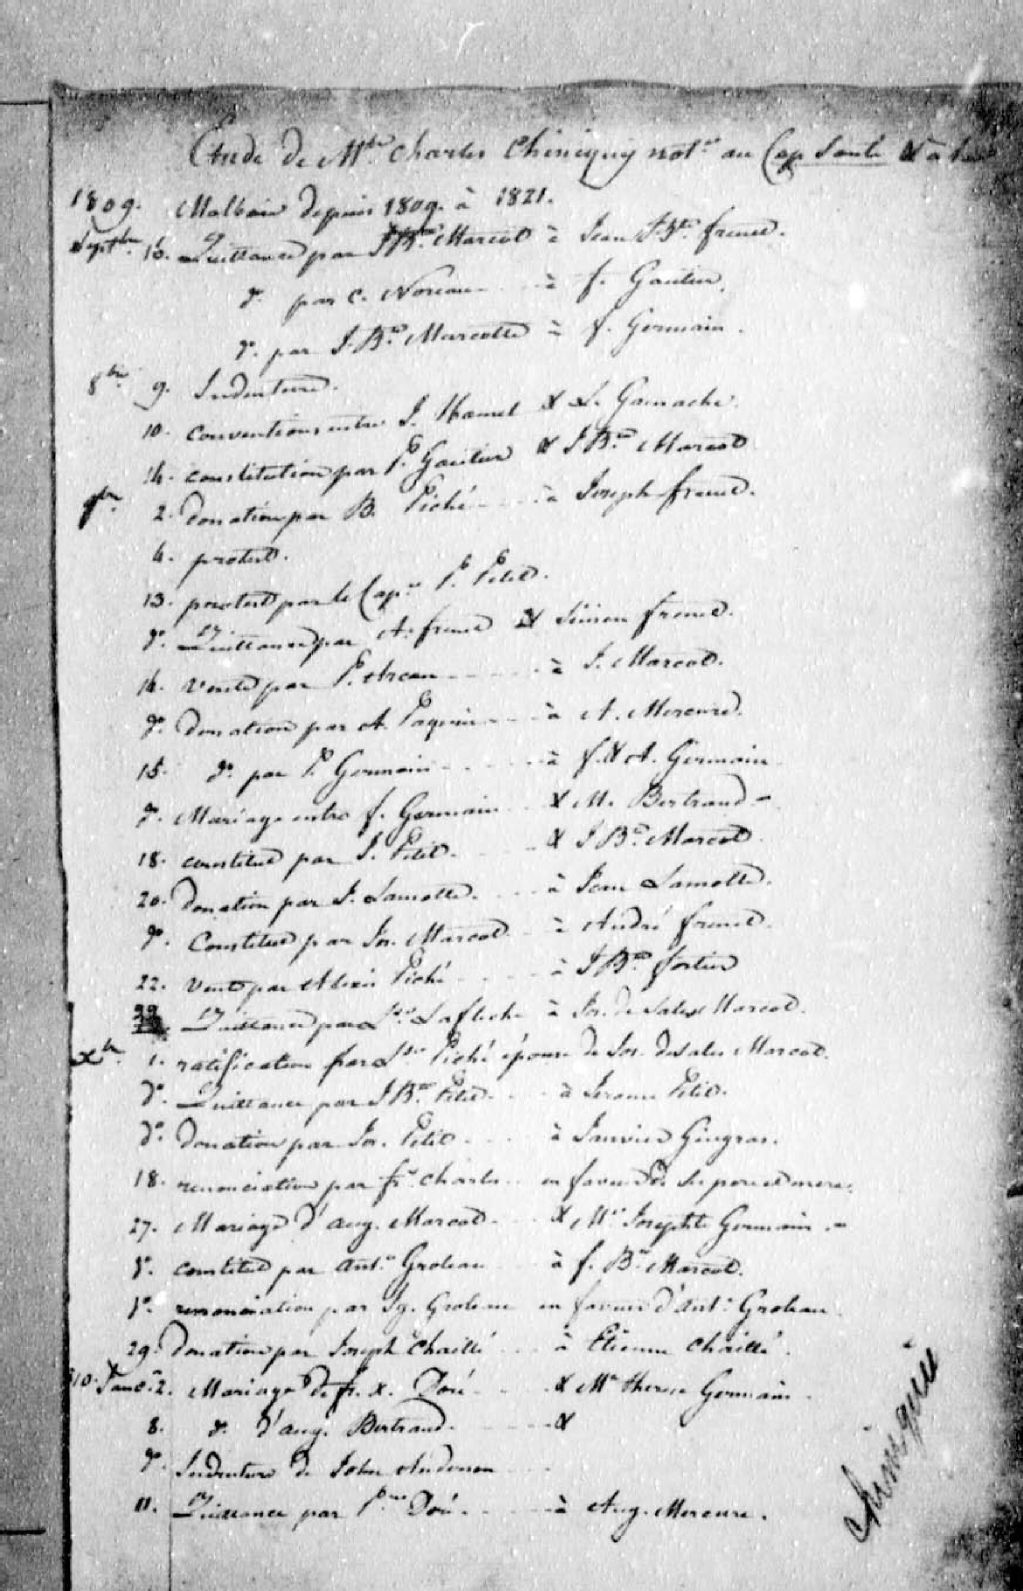 Etude de Mtre Charles Chiniquy notre au Cap Santé & à la
1809. Malbaie depuis 1809. à 1821.
Septbre 16. Quittance par J Bte Marcot à Jean Bte frenet.
do par C. Noreau à f. Gautier.
do. par J. Bte Marcotte à f. Germain.
8bre 9. Indenture.
10. conventions entre J. Hamel & L. Gamache.
14. constitution par P. Gautier & J Bte Marcot
9bre 2. donation par B. Piché à Joseph frenet.
4. protest.
13. protest par le Capne P. Petit.
do. Quittance par A. frenet & Simon frenet.
14. vente par P. Arcan à J. Marcot.
do. donation par A. Paquin à A. Mercure.
15. do. par P. Germain à f. & A. Germain
do. Mariage entre f. Germain & M. Bertrand
18. constitut par J. Petit. & J Bte Marcot
20. donation par J. Lamotte. à Jean Lamotte.
do. Constitut par Jos. Marcot à André frenet.
22. vente par Alexis Piché à J Bte fortier
29. Quittance par Lafleche à Jos. de Sales Marcot.
Xbre 1. ratification par Piché épouse de Jos. de Sales Marcot.
do. Quittance par J Bte Petit. à Jerome Petit.
do. donation par Jos. Petit à Janvier Gingras.
18. renonciation par fs. Charles en faveur de ses pere et mere.
27. Mariage d'Aug. Marcot. & Me Josephte Germain.
do. constitut par Ante Groleau à f. Bte Marcot.
do. renonciation par Ig. Groleau en faveur d'Ante Groleau.
29. donation par Joseph Chaillé à Etienne Chaillé.
10. Janv. 2. Mariage de fr. X. Doré & Me therese Germain.
8. do. d'Aug. Bertrand. &
do. Indenture de John Anderson
11. Quittance par Doré. à Aug. Mercure.
Chiniquy